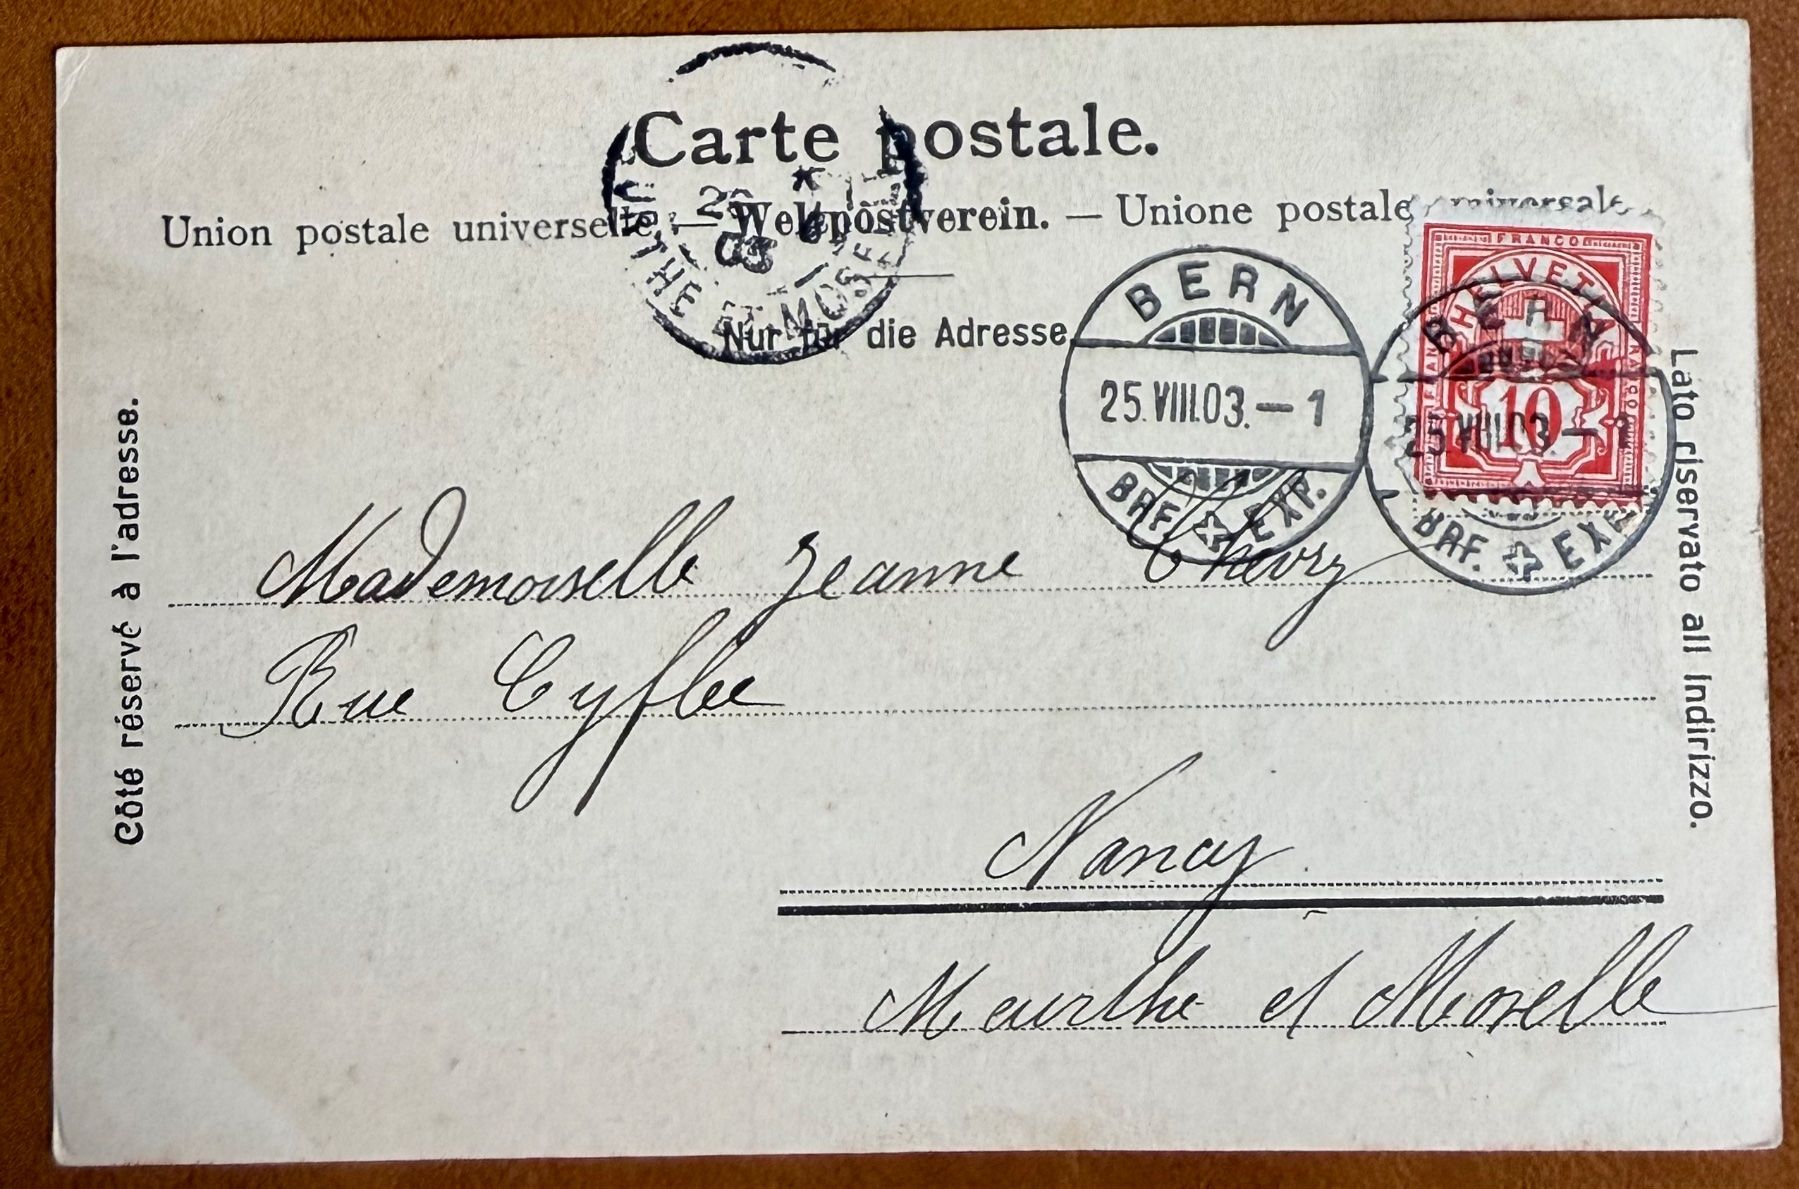 Carte postale.
Union postale universelle. — Weltpostverein. — Unione postale universale
Nur für die Adresse
Côté réservé à l'adresse.
Lato riservato all Indirizzo.
THE ET MOSELLE
26
03
BERN
25.VIII.03.–1
BRF. EXP.
FRANCO
HELVETIA
10
BERN
25.VIII.03.–1
BRF. EXP.
Mademoiselle Jeanne
Rue Cyfflée
Nancy
Meurthe et Moselle